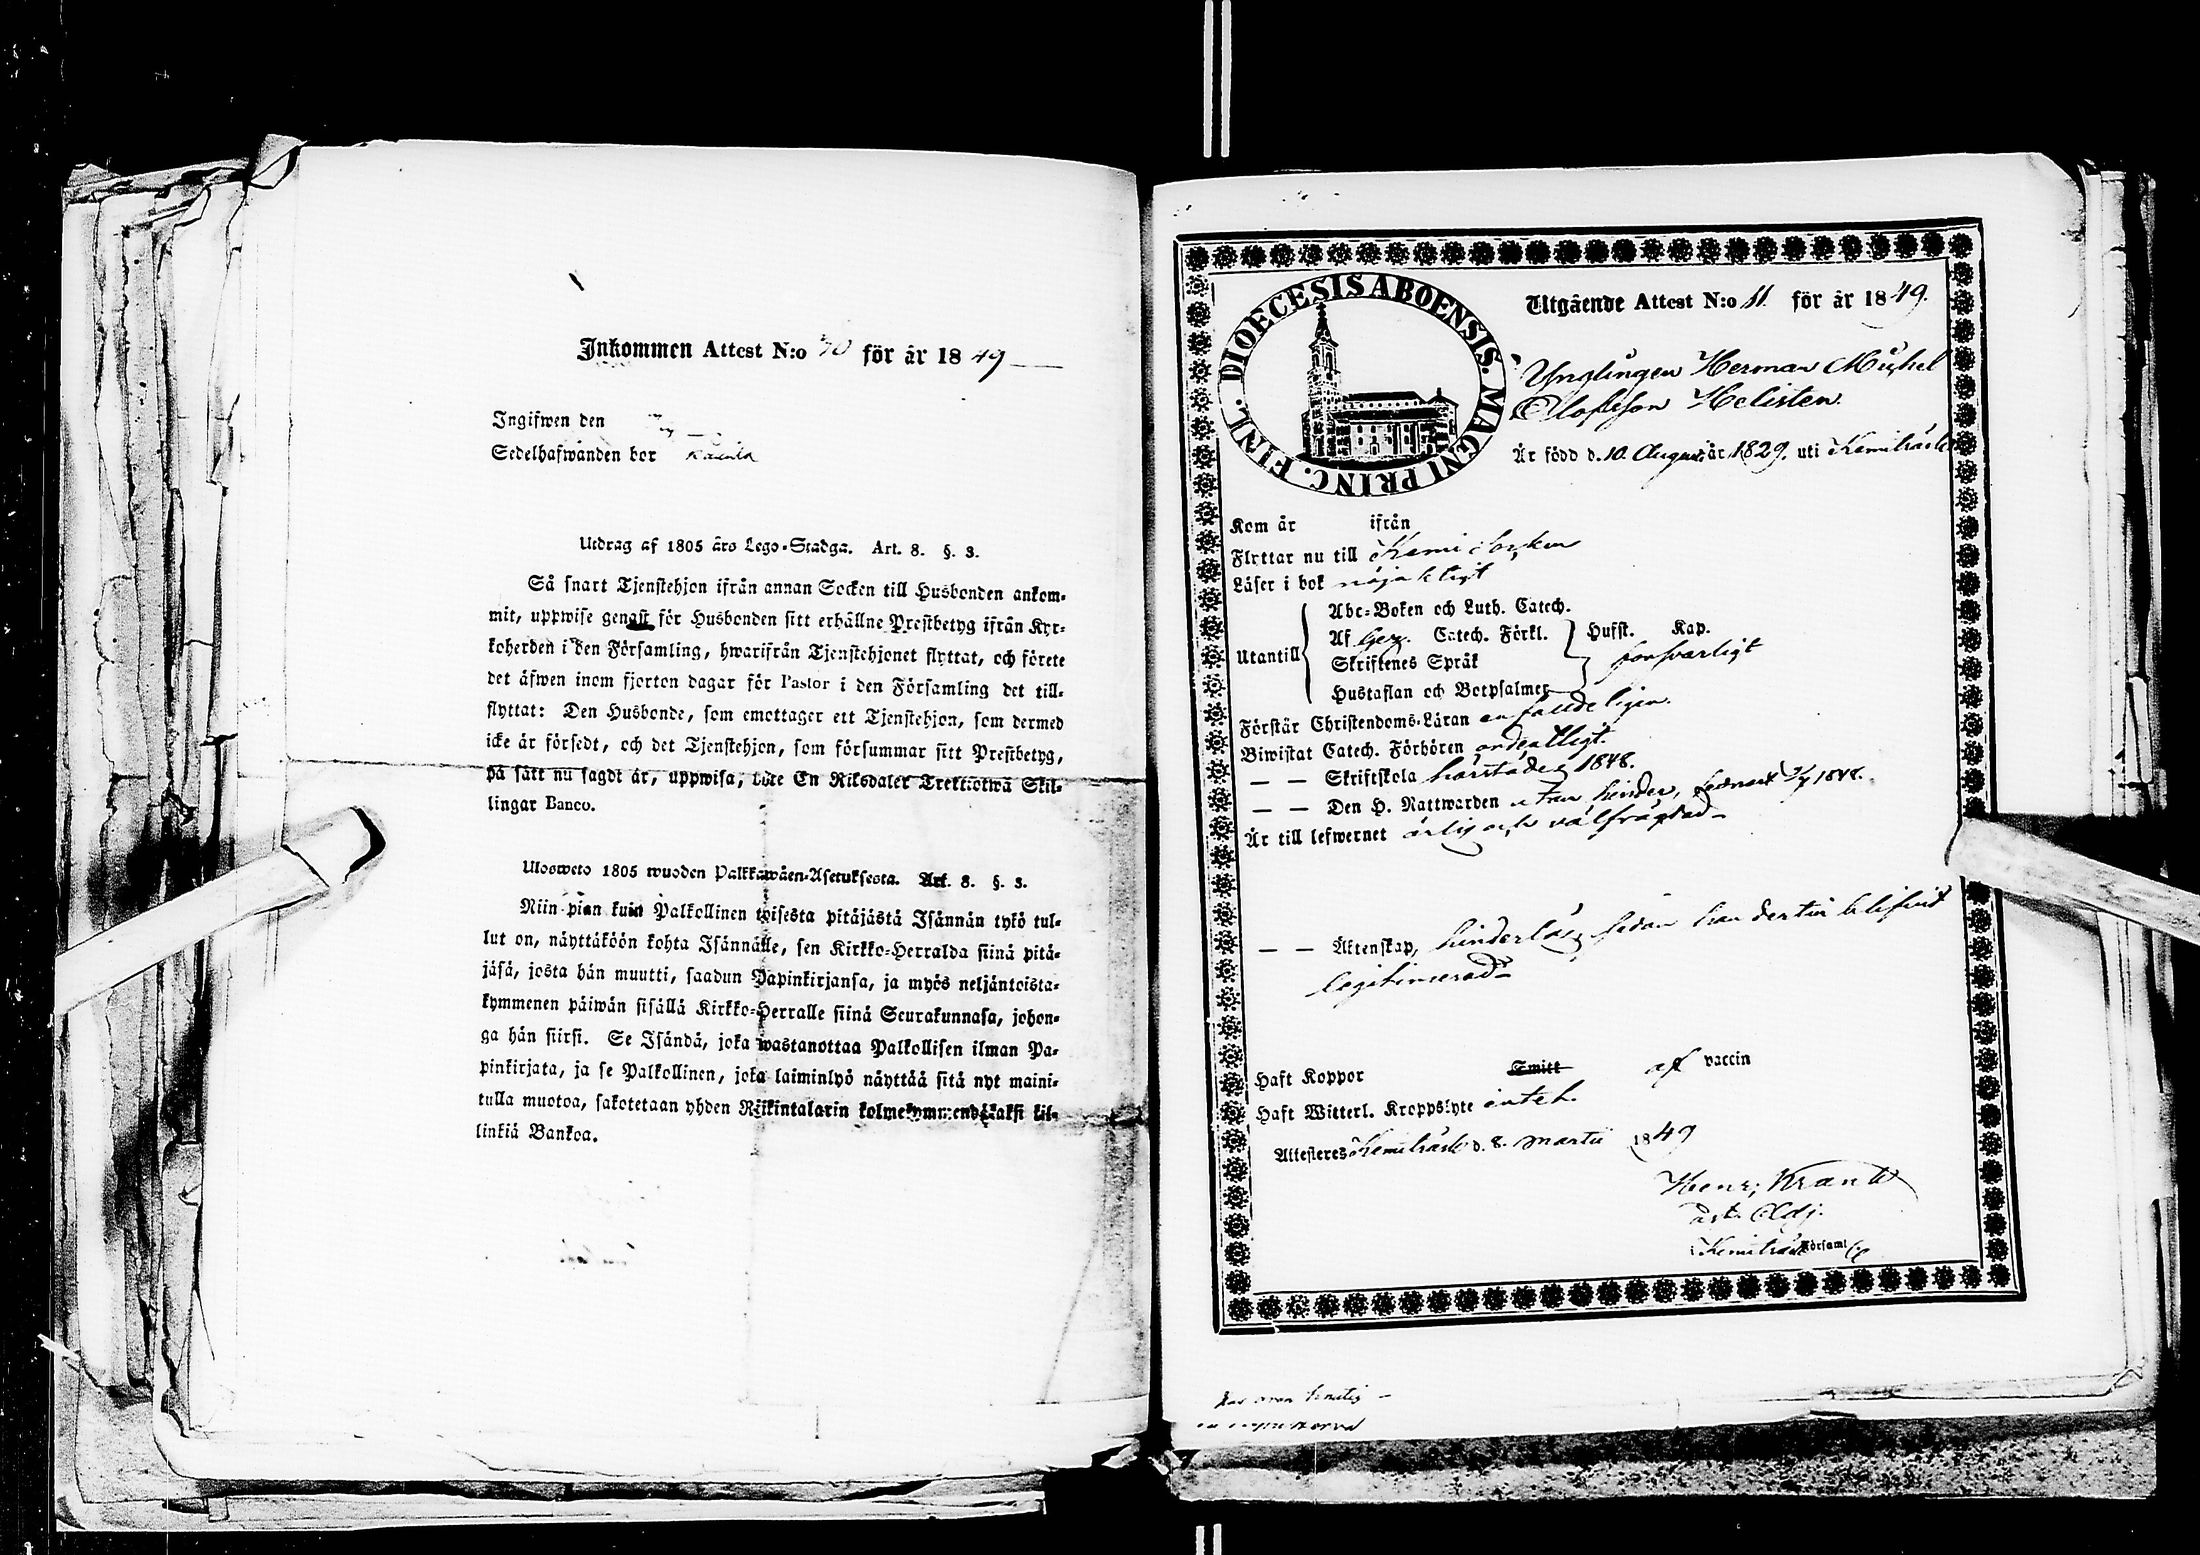 Inkommen Attest N:o 70 för år 1849
Ingifwen den
Sedelhafwanden bor
Utdrag af 1805 års Lego-Stadga. Art. 8. §. 3.
Så snart Tjenstehjon ifrån annan Socken till Husbonden ankom-
mit, uppwise genast för Husbonden sitt erhållne Prestbetyg ifrån Kyr-
koherden i den Församling, hwarifrån Tjenstehjonet flyttat, och förete
det äfwen inom fjorton dagar för Pastor i den Församling det till-
flyttat: Den Husbonde, som emottager ett Tjenstehjon, som dermed
icke är försedt, och det Tjenstehjon, som försummar sitt Prestbetyg,
på sätt nu sagdt är, uppwisa, böte En Riksdaler Trettiotwå Skil-
lingar Banco.
Ulosweto 1805 wuoden Palkkawäen-Asetuksesta. Art. 8. §. 3.
Niin pian kuin Palkollinen toisesta pitäjästä Isännän tykö tul-
lut on, näyttäköön kohta Isännälle, sen Kirkko-Herralda siinä pitä-
jäsä, josta hän muutti, saadun Papinkirjansa, ja myös neljäntoista-
kymmenen päiwän sisällä Kirkko-Herralle siinä Seurakunnasa, johon-
ga hän siirsi. Se Isändä, joka wastanottaa Palkollisen ilman Pa-
pinkirjata, ja se Palkollinen, joka laiminlyö näyttää sitä nyt maini-
tulla muotoa, sakotetaan yhden Riikintalarin kolmekymmendäkaksi kil-
linkiä Bankoa.
DIOECESIS ABOENSIS. MAGNI PRINC. FINL.
Utgående Attest N:o 11. för år 1849.
Ynglingen Herman Mickel
Olofsson Helisten.
Är född d. 10. Augusti år 1829. uti Kemiträsk
Kom år ifrån
Flyttar nu till Kemi Socken
Läser i bok nöjaktigt
Utantill
Abc-Boken och Luth. Catech.
Af Gez. Catech. Förkl. Hufst. Kap.
Skriftenes Språk försvarligt
Hustaflan och Botpsalmer
Förstår Christendoms-Läran enfaldeligen.
Biwistat Catech. Förhören ordentligt.
— — Skriftskola härstädes 1848.
— — Den H. Nattwarden utan hinder, sednast 2/7 1848.
Är till lefwernet ärlig och välfrägdad
— — Äktenskap, hinderlös, sedan han dertill blifvit
legitimerad
Haft Koppor Smitt af vaccin
Haft Witterl. Kroppslyte intet.
Attesteres Kemiträsk d. 8. Martii 1849
Henr. Krank
Adj.
i Kemiträsk Församl.